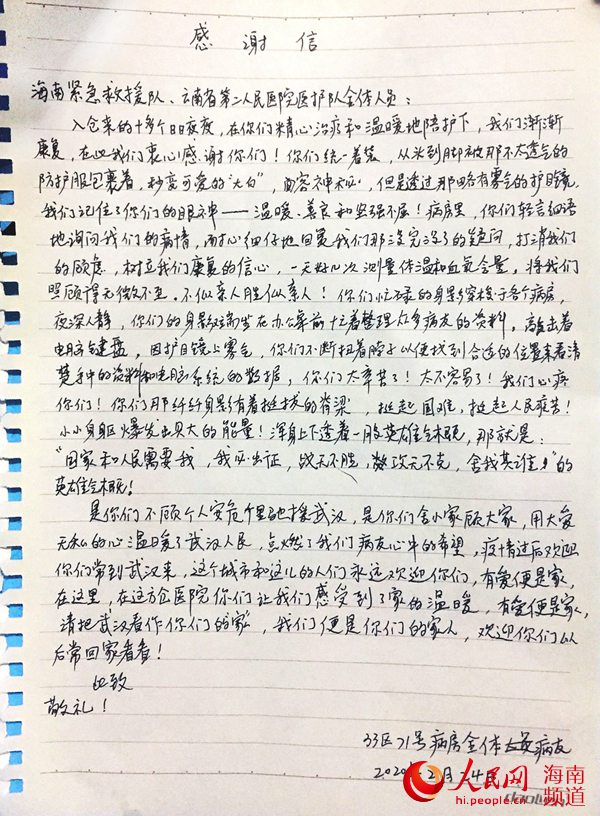 感谢信
海南紧急救援队、云南省第二人民医院医护队全体人员：
入仓来的十多个日日夜夜，在你们精心治疗和温暖地陪护下，我们渐渐
康复，在此我们衷心感谢你们！你们统一着装，从头到脚被那不太透气的
防护服包裹着，秒变可爱的“大白”，面容神秘，但是透过那略有雾气的护目镜，
我们记住了你们的眼神——温暖、善良和坚强不屈！病房里，你们轻言细语
地询问我们的病情，耐心细仔地回复我们那没完没了的疑问，打消我们
的顾虑，树立我们康复的信心，一天好几次测量体温和血氧含量，将我们
照顾得无微不至。不似亲人胜似亲人！你们忙碌的身影穿梭于各个病房，
夜深人静，你们的身影端坐在办公桌前忙着整理众多病友的资料，敲击着
电脑键盘，因护目镜上雾气，你们不断扭着脖子以便找到合适的位置来看清
楚手中的资料和电脑系统的数据，你们太辛苦了！太不容易了！我们心疼
你们！你们那纤纤身影有着挺拔的脊梁，挺起国难，挺起人民疾苦！
小小身躯爆发出巨大的能量！浑身上下透着一股英雄气概，那就是：
“国家和人民需要我，我必出征，战无不胜，攻无不克，舍我其谁”的
英雄气概！
是你们不顾个人安危千里驰援武汉，是你们舍小家顾大家，用大爱
无私的心温暖了武汉人民，点燃了我们病友心中的希望，疫情过后欢迎
你们常到武汉来，这个城市和这儿的人们永远欢迎你们，有爱便是家，
在这里，在这方仓医院你们让我们感受到了家的温暖，有爱便是家，
请把武汉看作你们的家，我们便是你们的家人，欢迎你们以
后常回家看看！
此致
敬礼！
33区71号病房全体病友
2020年2月24日
人民网 海南频道
hi.people.cn